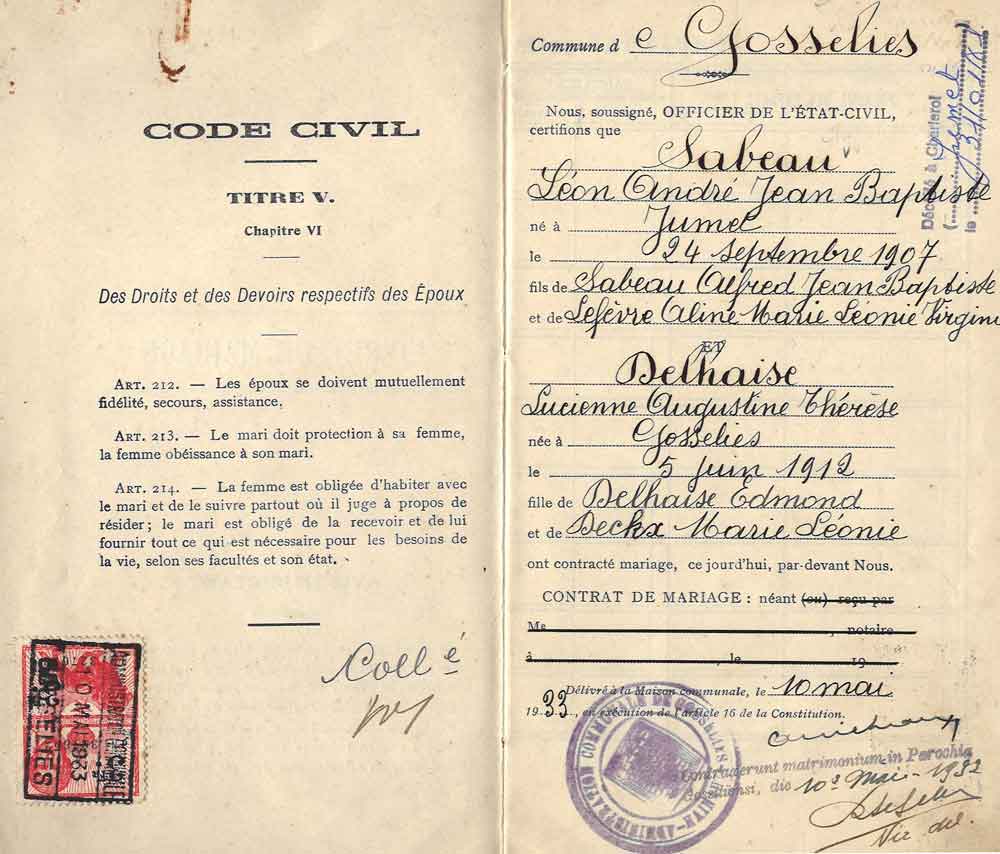 CODE CIVIL
TITRE V.
Chapitre VI
Des Droits et des Devoirs respectifs des Époux
ART. 212. — Les époux se doivent mutuellement
fidélité, secours, assistance.
ART. 213. — Le mari doit protection à sa femme,
la femme obéissance à son mari.
ART. 214. — La femme est obligée d'habiter avec
le mari et de le suivre partout où il juge à propos de
résider ; le mari est obligé de la recevoir et de lui
fournir tout ce qui est nécessaire pour les besoins de
la vie, selon ses facultés et son état.
Collé
10 MAI 1933
Commune de Gosselies
Nous, soussigné, OFFICIER DE L'ÉTAT-CIVIL,
certifions que
Sabeau
Léon André Jean Baptiste
né à Jumet
le 24 septembre 1907
fils de Sabeau Alfred Jean Baptiste
et de Lefèvre Aline Marie Léonie Virgini
ET
Delhaise
Lucienne Augustine Thérèse
née à Gosselies
le 5 juin 1912
fille de Delhaise Edmond
et de Deckx Marie Léonie
ont contracté mariage, ce jourd'hui, par-devant Nous.
CONTRAT DE MARIAGE : néant (ou) reçu par
Me , notaire
à , le 19
Délivré à la Maison communale, le 10 mai
1933, en exécution de l'article 16 de la Constitution.
Contraxerunt matrimonium in Parochia
die 10a Mai
Vic del.
ADMINISTRATION COMMUNALE DE GOSSELIES
Décédé à Charleroi
(Jumet
le